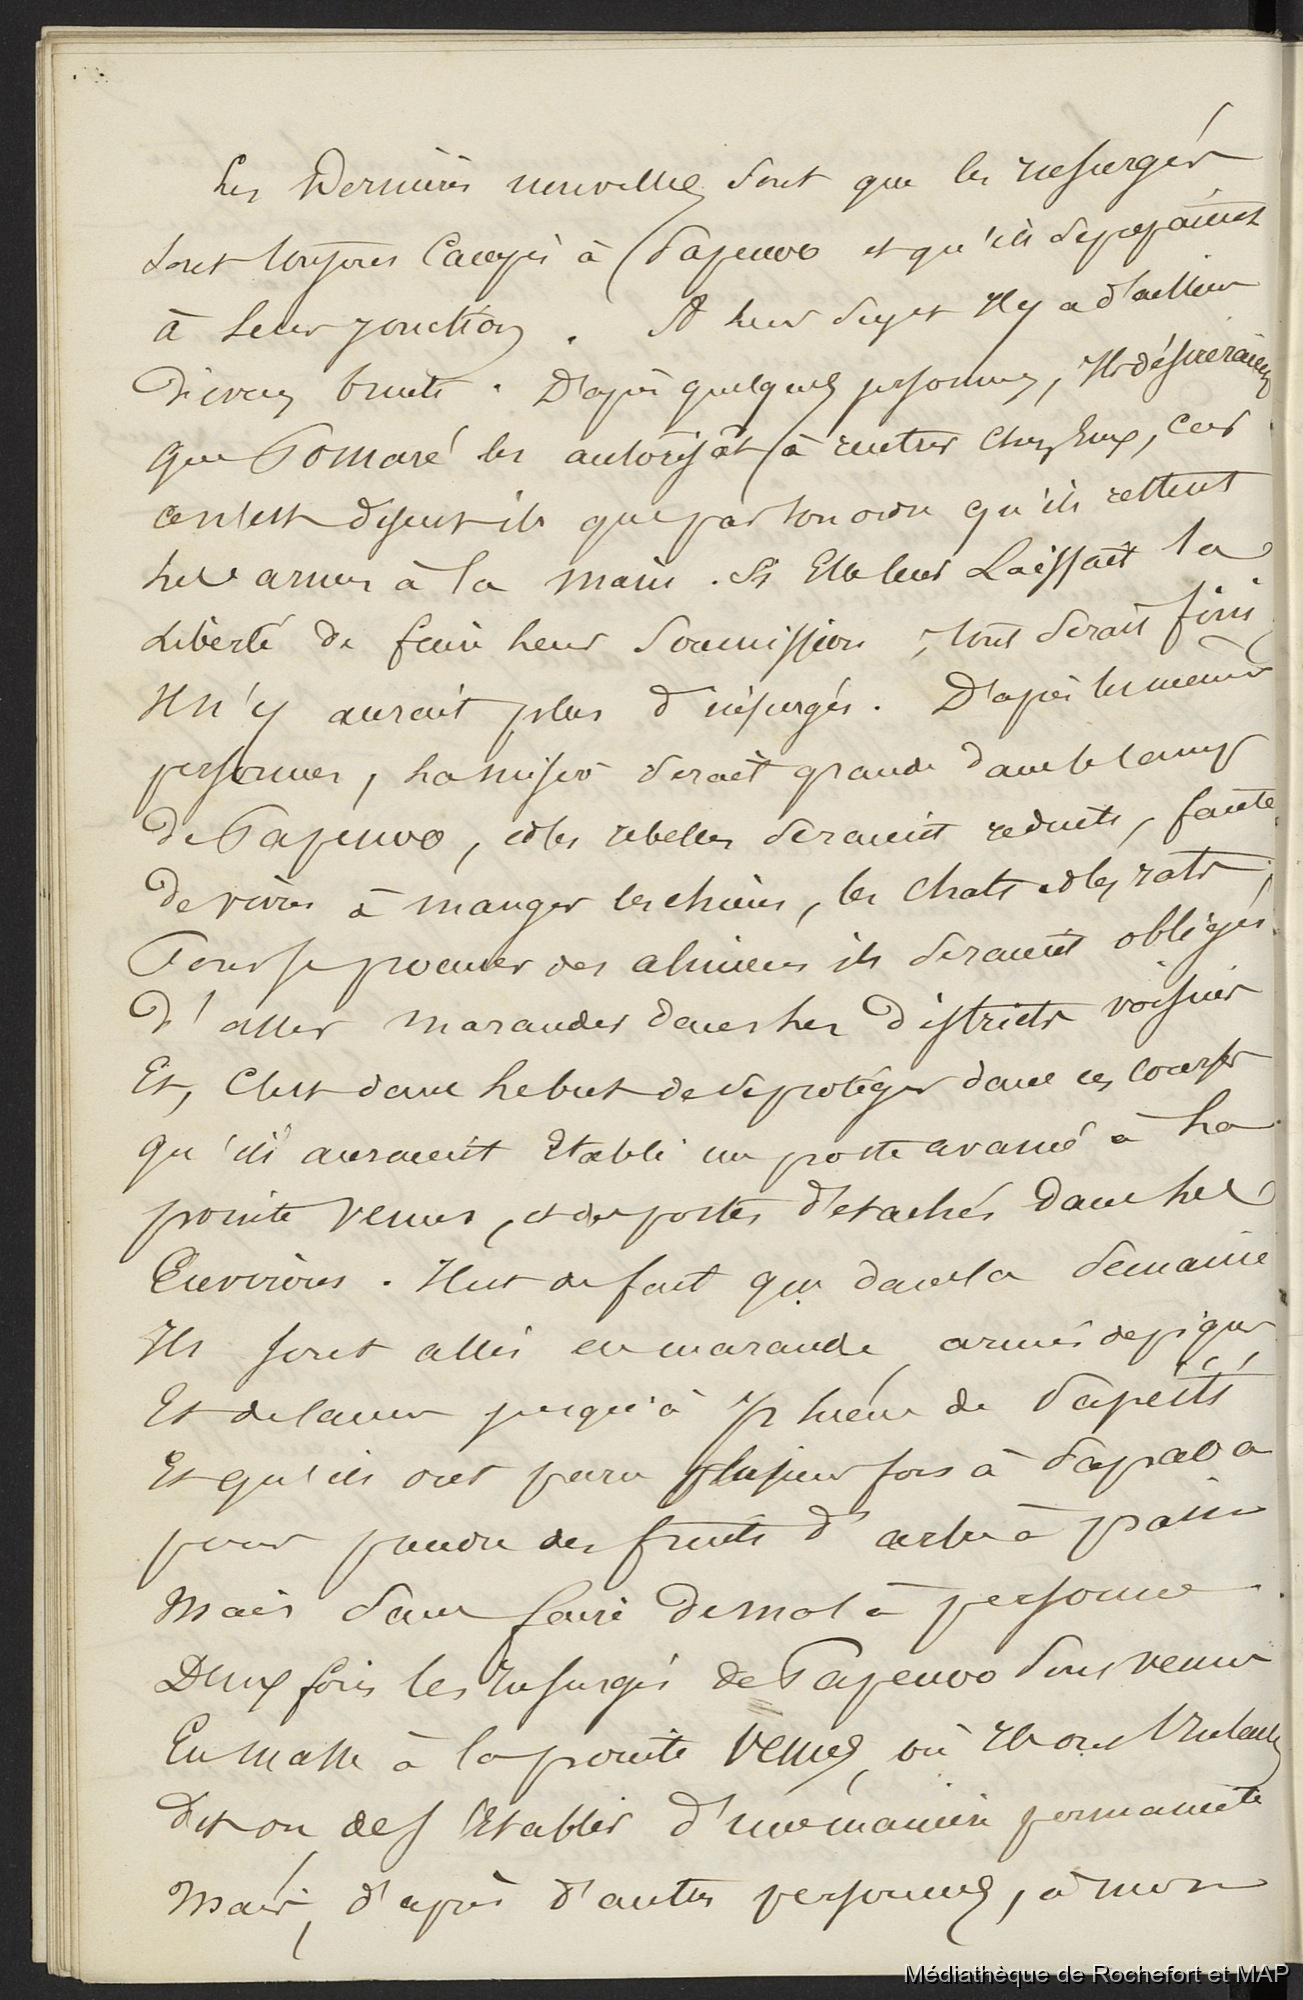 Les Dernières nouvelles sont que les insurgés
sont toujours Campés à Papenoo et qu'ils se préparent
à leur jonction. A leur sujet Il y a d'ailleur
Divers bruits. D'après quelques personnes, Ils désireraient
que Pomaré les autorisât à rentrer chez Eux, car
ce n'est disent-ils que par son ordre qu'ils restent
les armes à la main. Si Elle leur Laissait la
Liberté de faire leur Soumission, tout serait fini
Il n'y aurait plus d'insurgés. D'après les mêmes
personnes, la misère serait grande dans le camp
De Papenoo, et les rebelles seraient réduits, faute
De vivres à manger les chiens, les chats et les rats,
Pour se procurer des aliments ils seraient obligés
D'aller marauder dans les Districts voisins
Et, C'est dans le but de se protéger dans ces courses
qu'ils auraient Etabli un poste avancé à la
pointe Venus, et des postes détachés Dans les
Environs. Il est de fait que dans la semaine
Ils sont allés en maraude, armés de piques
Et de lances jusqu'à
Et qu'ils ont paru plusieurs fois à
pour prendre des fruits d'arbre à pain
Mais sans faire De mal à personne.
Deux fois les Insurgés de Papenoo sont venus
En masse à la pointe Venus, où Ils ont l'Intention
dit on, de s'Etablir d'une manière permanente
Mais, d'après d'autres personnes, à mon
Médiathèque de Rochefort et MAP